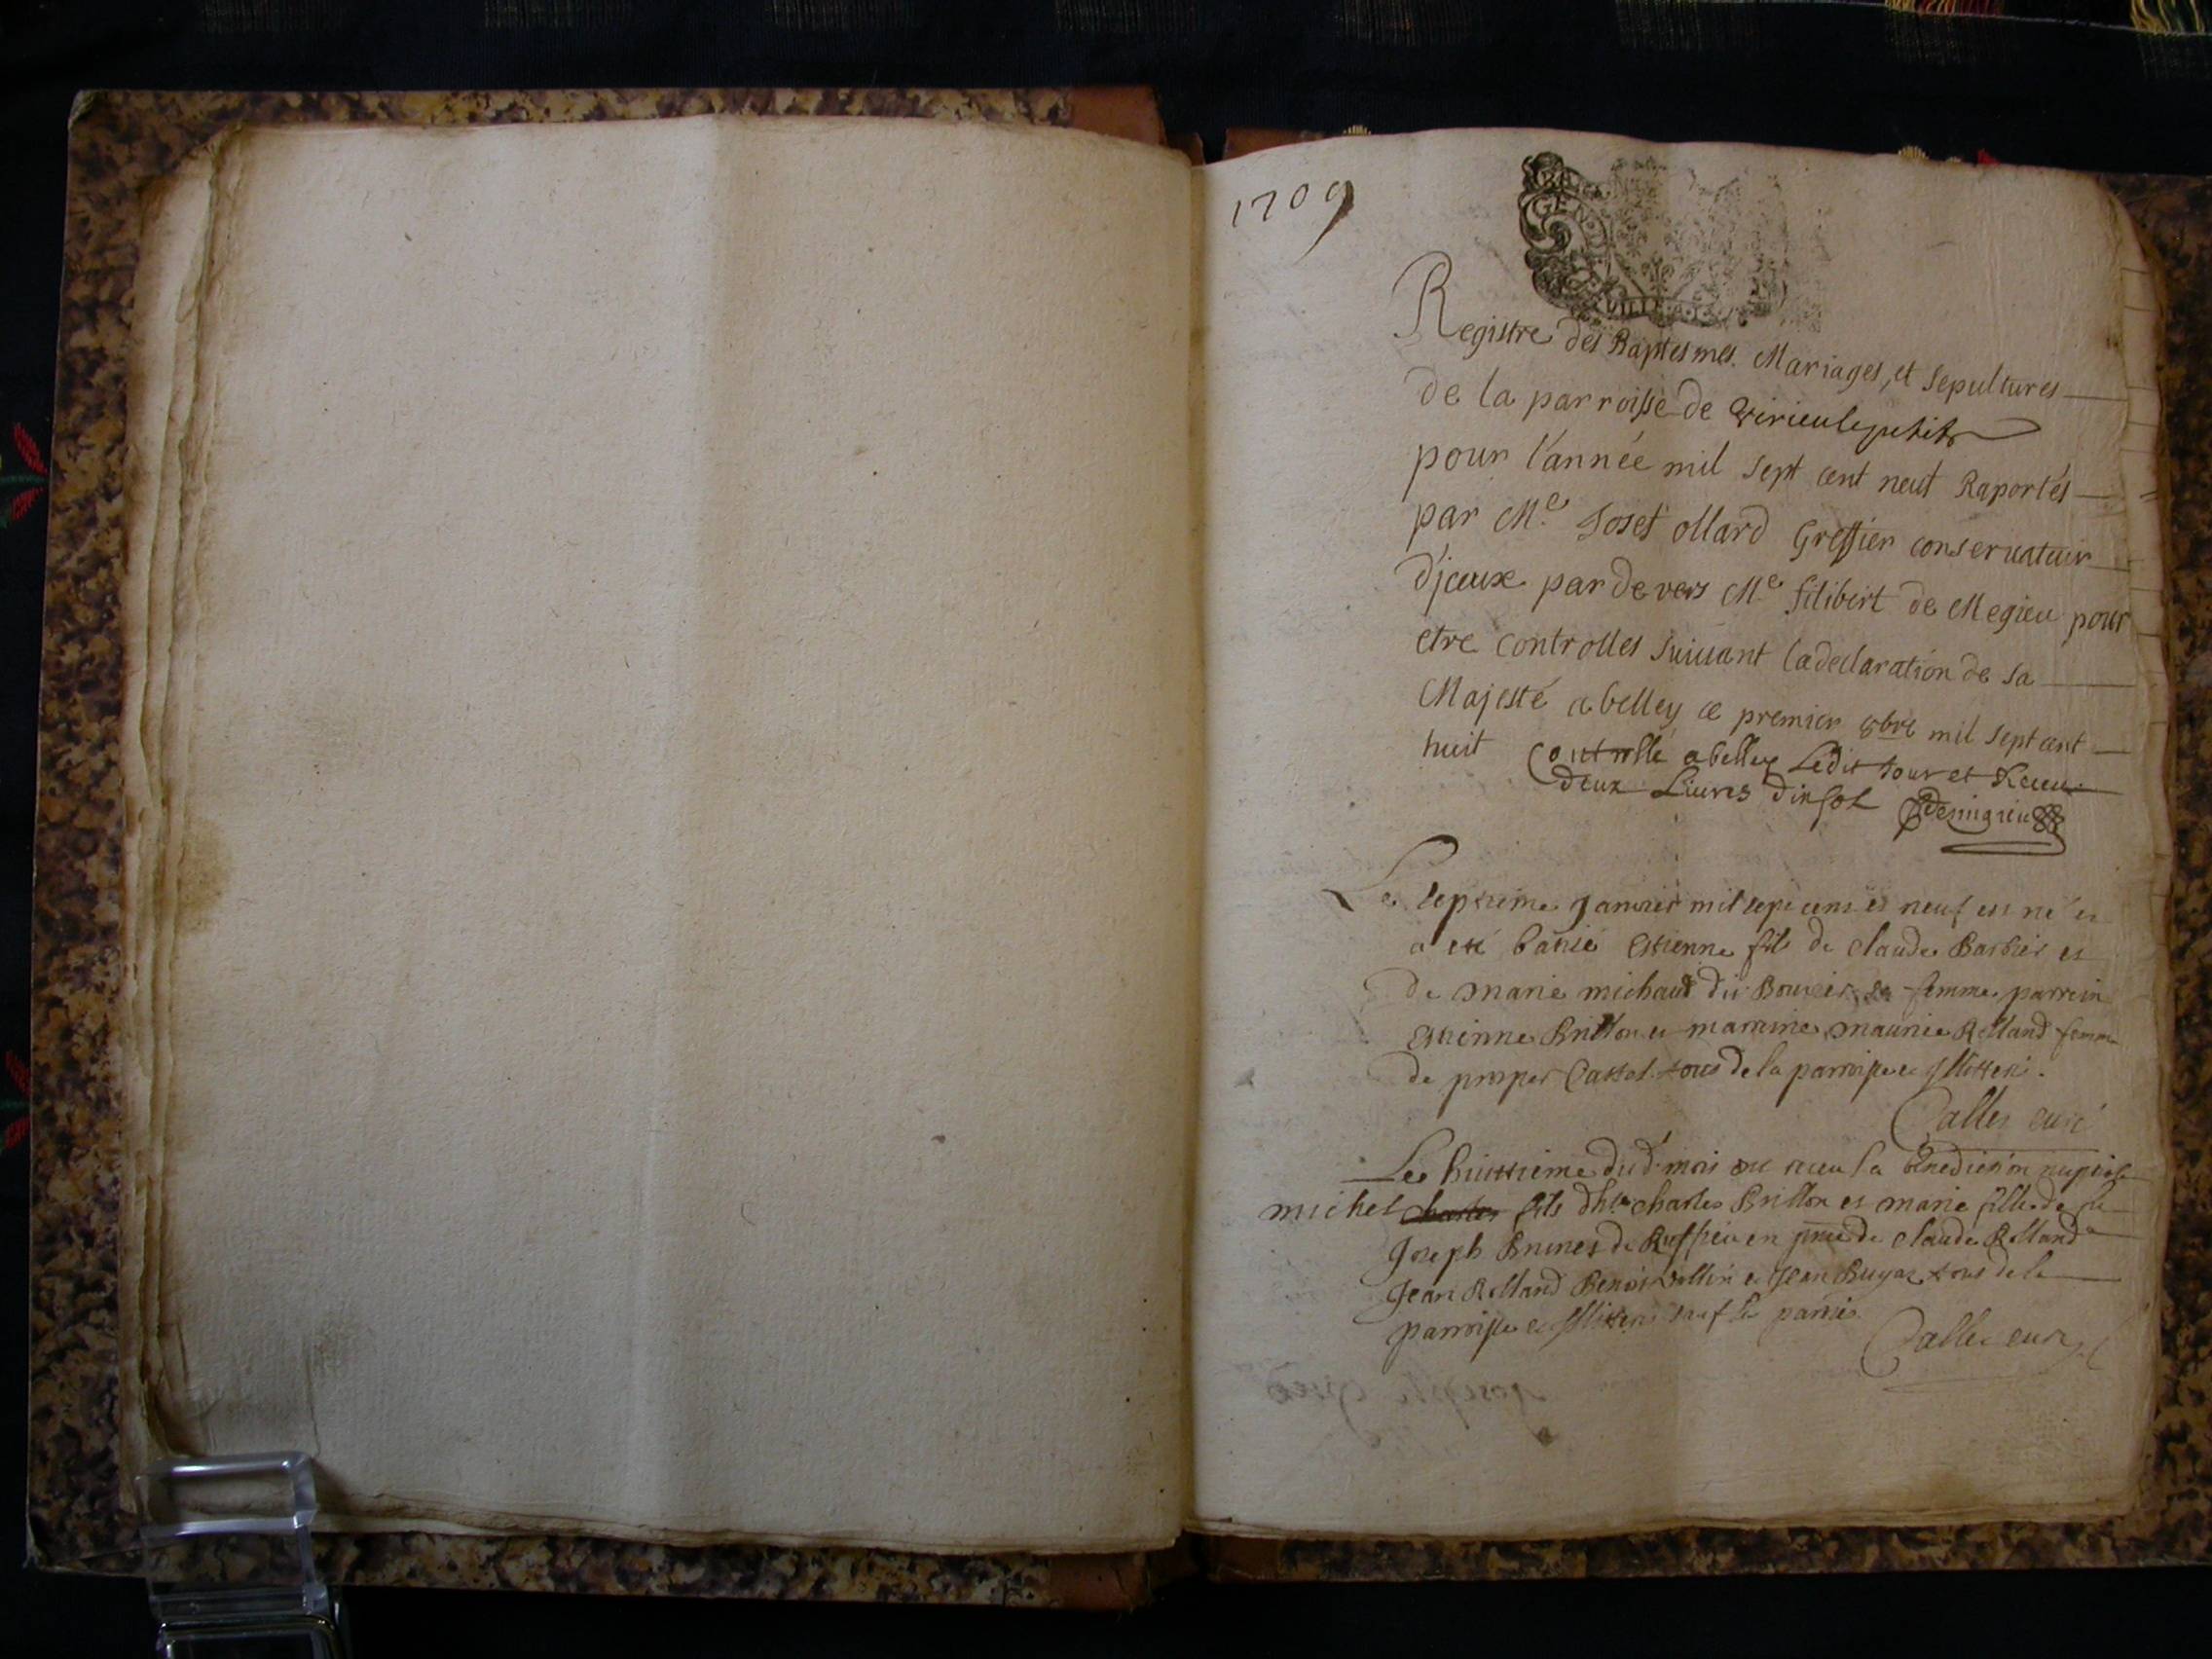 1709
GEN
Registre des Baptesmes. Mariages, et Sepultures
de la parroisse de virieulepetit
pour l'année mil sept cent neuf Raportés
par Me. Josef ollard Greffier conservateur
d'jceux par devers Me. filibert de Megieu pour
etre controlles suivant la declaration de sa
Majesté a belley ce premier 8bre mil sept cent
huit Controllé a belley Ledit Jour et Receu
deux Livres dix sol Demigieu
Le septieme Janvier mil sept cens et neuf est né et
a esté batisé Estienne fils de claude Barbier et
de marie michaud dit Bouvier sa femme, parrein
Estienne Brillon et marreine maurise Rolland femme
de prosper Cassol tous de la parroisse et Illitteré.
Callet curé
Le huittieme dud. mois ont receu la benediction nuptiale
michel charles fils dhte charles Brillon et marie fille de fu
Joseph Brunet de Ruffieu en pnce de claude Rolland
Jean Rolland Benoit Vollin et Jean Bugas tous de la
parroisse et Illitteré sauf les parties
Callet curé